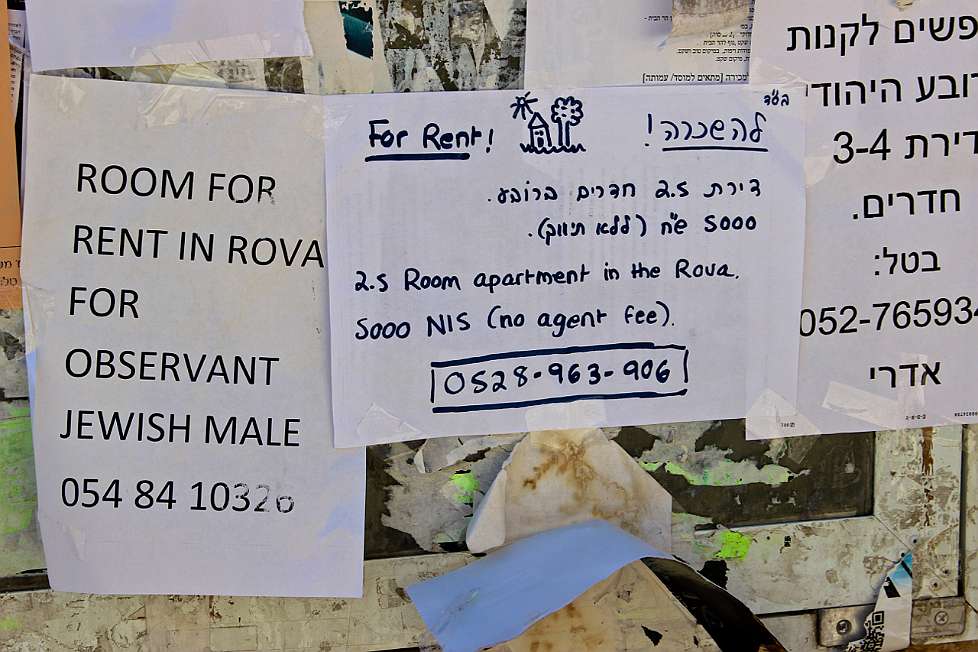 ROOM FOR
RENT IN ROVA
FOR
OBSERVANT
JEWISH MALE
054 84 10326
בס"ד
For Rent!
להשכרה!
דירת 2.5 חדרים ברובע.
5000 ש"ח (ללא תיווך).
2.5 Room apartment in the Rova.
5000 NIS (no agent fee).
0528-963-906
פשים לקנות
ובע היהודי
דירת 3-4
חדרים.
בטל:
052-765934
אדרי